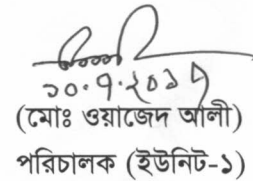 ১০.৭.২০১৭
(মোঃ ওয়াজেদ আলী)
পরিচালক (ইউনিট-১)